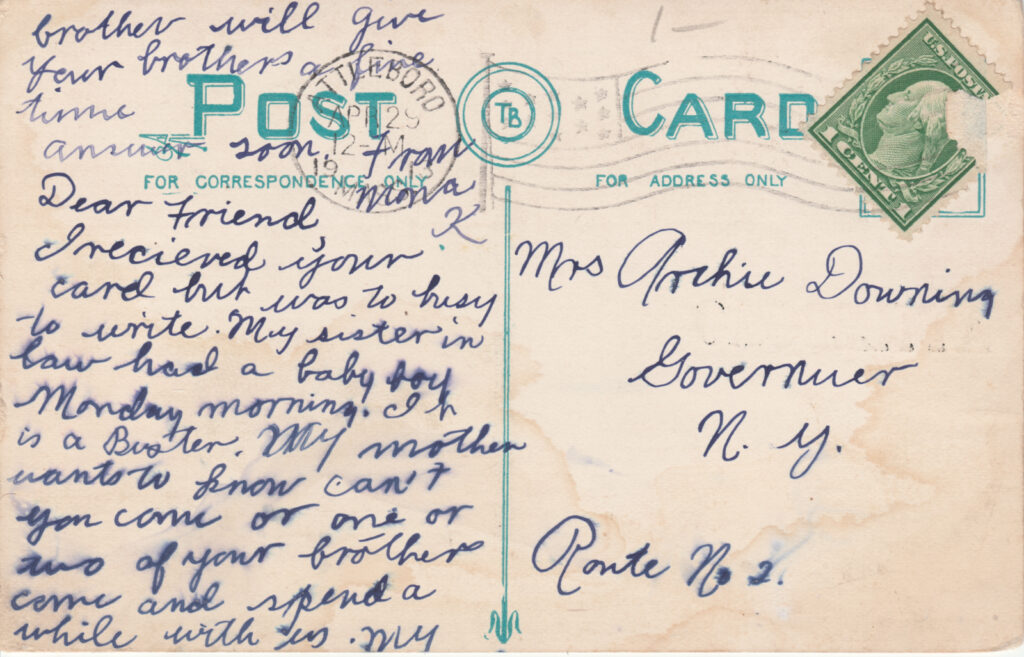 brother will give
your brothers a fine
time
answer soon. From
Mona
K
Dear Friend
I recieved your
card but was to busy
to write. My sister in
law had a baby boy
Monday morning. It
is a Buster. My mother
wants to know can't
you come or one or
two of your brothers
come and spend a
while with us. My
POST CARD
TB
FOR CORRESPONDENCE ONLY
FOR ADDRESS ONLY
ATTLEBORO
APR 29
12-M
MASS.
1-
U.S. POSTAGE
1 CENT 1
Mrs Archie Downing
Governuer
N. Y.
Route No 2.